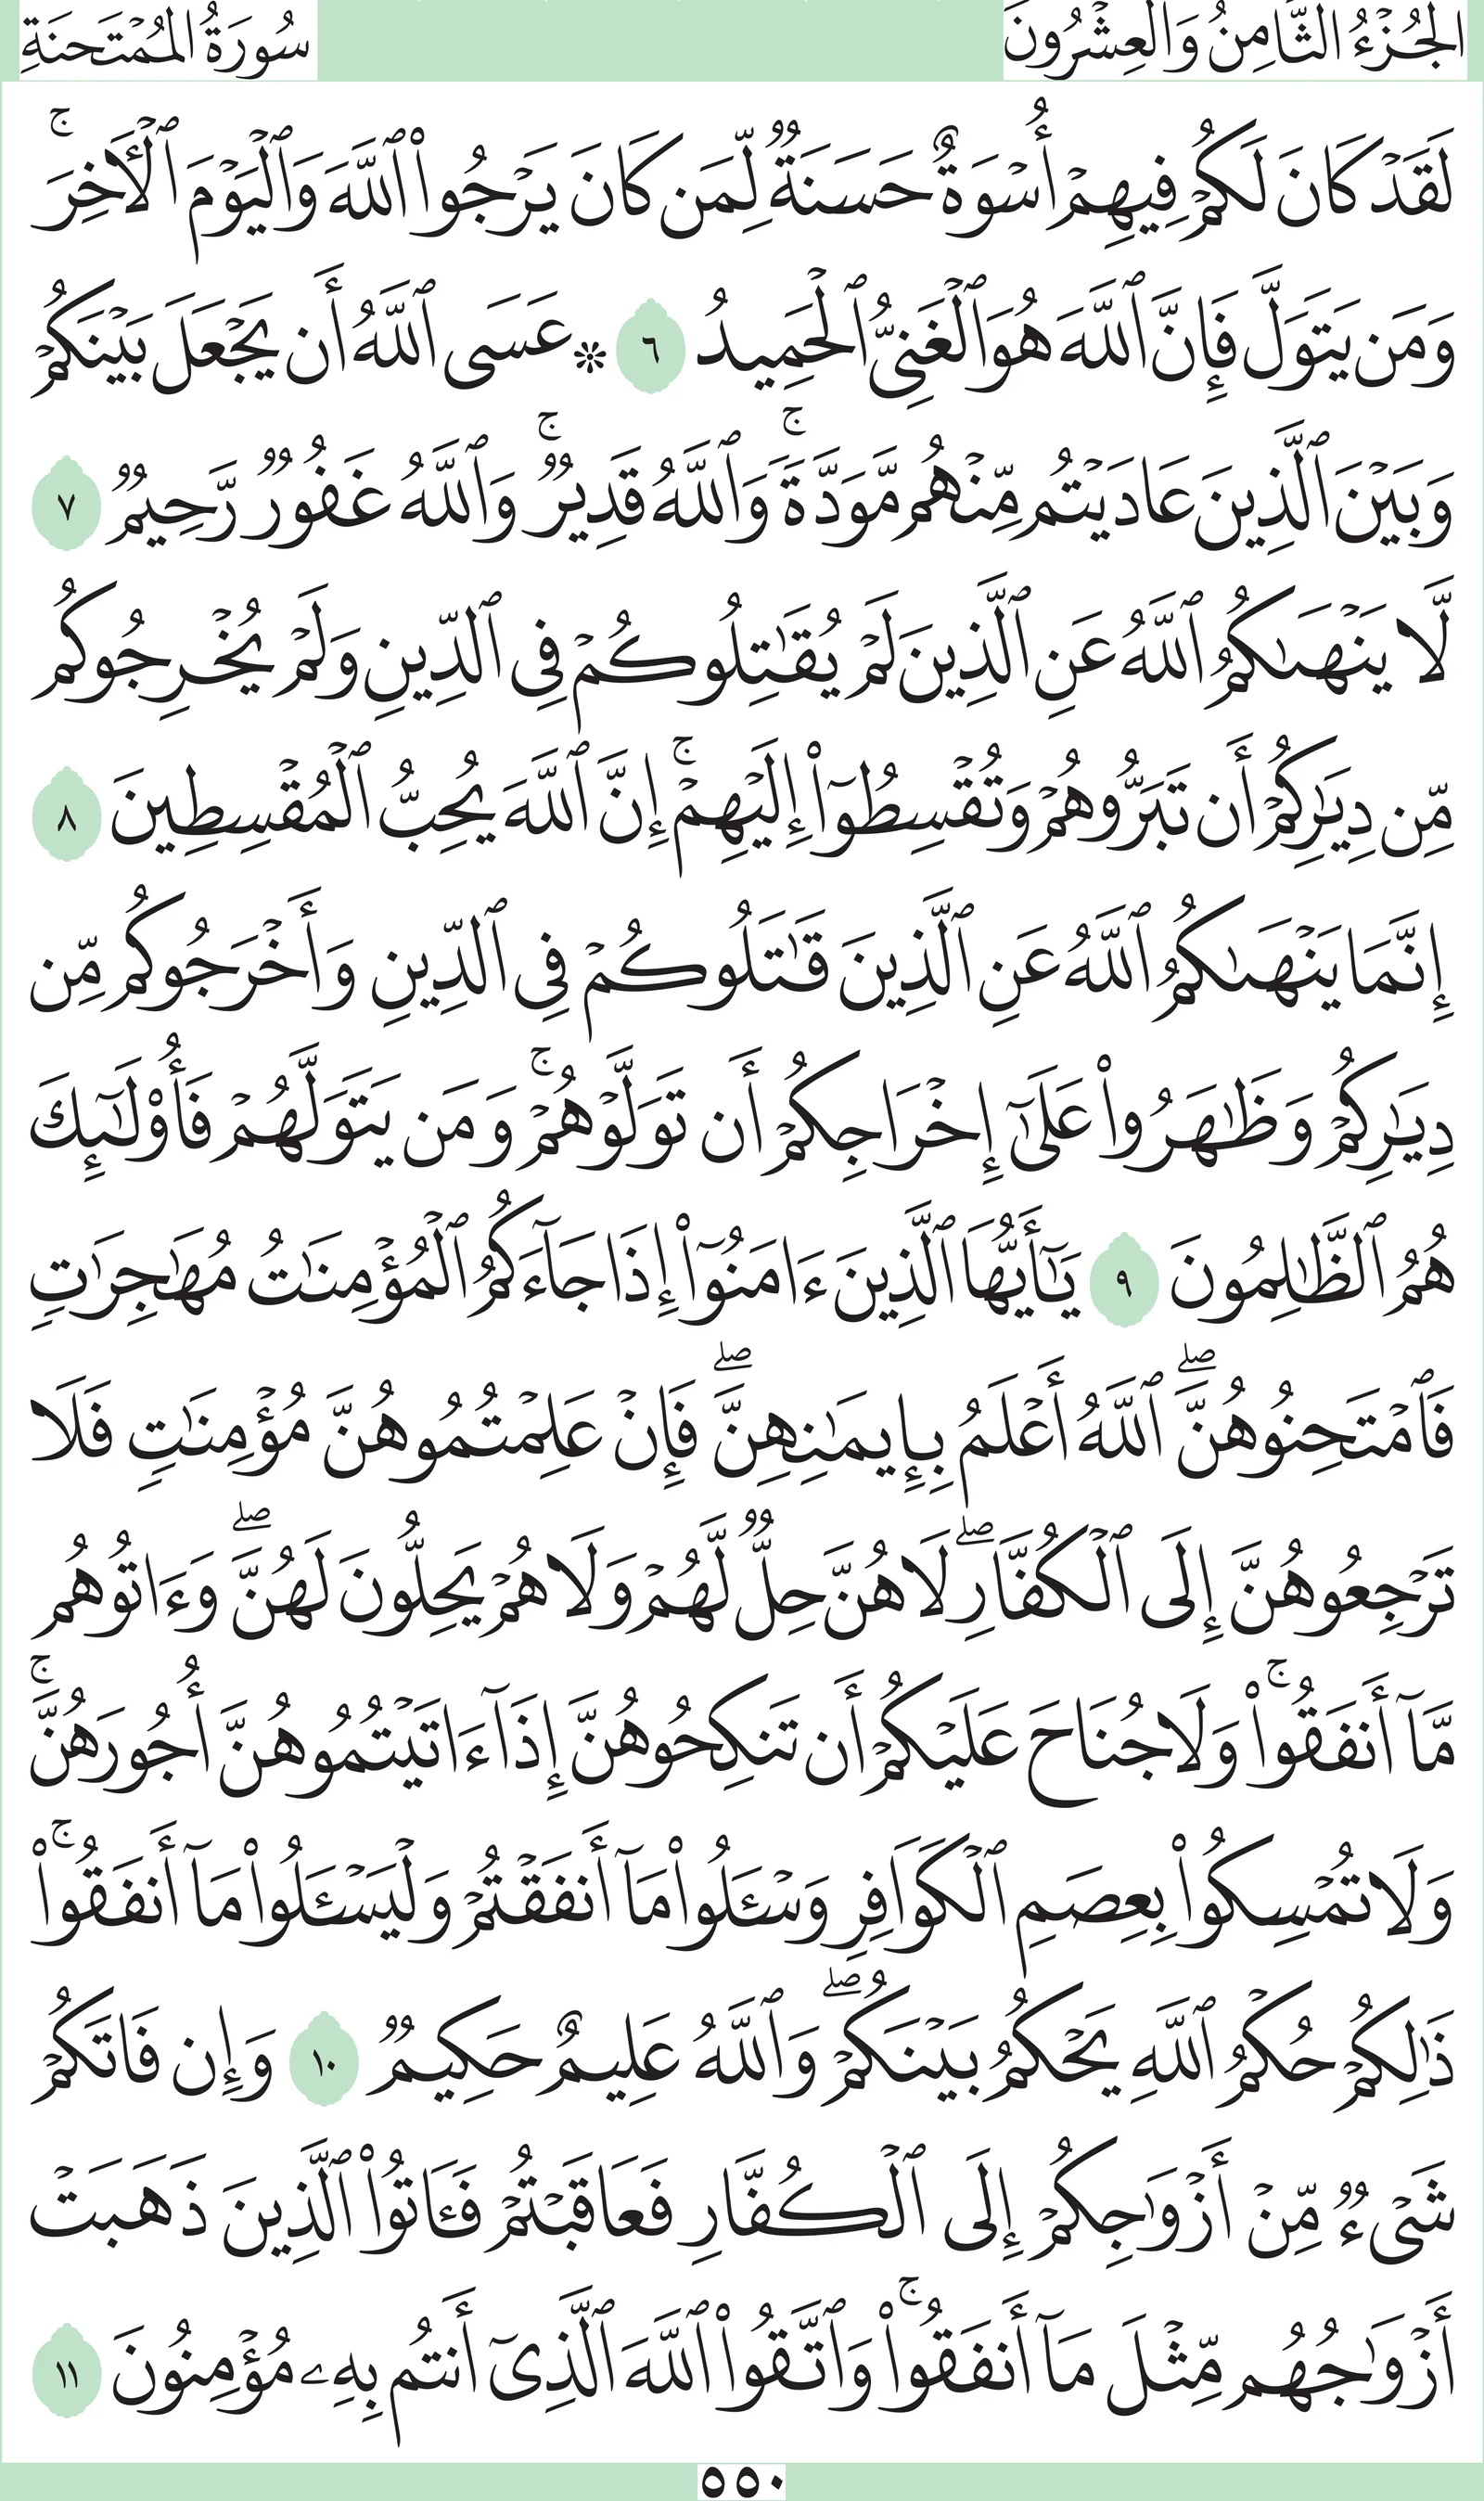 الجُزْءُ الثَّامِنُ وَالْعِشْرُونَ
سُورَةُ المُمْتَحنَةِ
لَقَدْ كَانَ لَكُمْ فِيهِمْ أُسْوَةٌ حَسَنَةٌ لِّمَن كَانَ يَرْجُوا۟ ٱللَّهَ وَٱلْيَوْمَ ٱلْـَٔاخِرَ ۚ
وَمَن يَتَوَلَّ فَإِنَّ ٱللَّهَ هُوَ ٱلْغَنِىُّ ٱلْحَمِيدُ ٦ ۞ عَسَى ٱللَّهُ أَن يَجْعَلَ بَيْنَكُمْ
وَبَيْنَ ٱلَّذِينَ عَادَيْتُم مِّنْهُم مَّوَدَّةً ۚ وَٱللَّهُ قَدِيرٌ ۚ وَٱللَّهُ غَفُورٌ رَّحِيمٌ ٧
لَّا يَنْهَىٰكُمُ ٱللَّهُ عَنِ ٱلَّذِينَ لَمْ يُقَـٰتِلُوكُمْ فِى ٱلدِّينِ وَلَمْ يُخْرِجُوكُم
مِّن دِيَـٰرِكُمْ أَن تَبَرُّوهُمْ وَتُقْسِطُوٓا۟ إِلَيْهِمْ ۚ إِنَّ ٱللَّهَ يُحِبُّ ٱلْمُقْسِطِينَ ٨
إِنَّمَا يَنْهَىٰكُمُ ٱللَّهُ عَنِ ٱلَّذِينَ قَـٰتَلُوكُمْ فِى ٱلدِّينِ وَأَخْرَجُوكُم مِّن
دِيَـٰرِكُمْ وَظَـٰهَرُوا۟ عَلَىٰٓ إِخْرَاجِكُمْ أَن تَوَلَّوْهُمْ ۚ وَمَن يَتَوَلَّهُمْ فَأُو۟لَـٰٓئِكَ
هُمُ ٱلظَّـٰلِمُونَ ٩ يَـٰٓأَيُّهَا ٱلَّذِينَ ءَامَنُوٓا۟ إِذَا جَآءَكُمُ ٱلْمُؤْمِنَـٰتُ مُهَـٰجِرَٰتٍ
فَٱمْتَحِنُوهُنَّ ۖ ٱللَّهُ أَعْلَمُ بِإِيمَـٰنِهِنَّ ۖ فَإِنْ عَلِمْتُمُوهُنَّ مُؤْمِنَـٰتٍ فَلَا
تَرْجِعُوهُنَّ إِلَى ٱلْكُفَّارِ ۖ لَا هُنَّ حِلٌّ لَّهُمْ وَلَا هُمْ يَحِلُّونَ لَهُنَّ ۖ وَءَاتُوهُم
مَّآ أَنفَقُوا۟ ۚ وَلَا جُنَاحَ عَلَيْكُمْ أَن تَنكِحُوهُنَّ إِذَآ ءَاتَيْتُمُوهُنَّ أُجُورَهُنَّ ۚ
وَلَا تُمْسِكُوا۟ بِعِصَمِ ٱلْكَوَافِرِ وَسْـَٔلُوا۟ مَآ أَنفَقْتُمْ وَلْيَسْـَٔلُوا۟ مَآ أَنفَقُوا۟ ۚ
ذَٰلِكُمْ حُكْمُ ٱللَّهِ يَحْكُمُ بَيْنَكُمْ ۖ وَٱللَّهُ عَلِيمٌ حَكِيمٌ ١٠ وَإِن فَاتَكُمْ
شَىْءٌ مِّنْ أَزْوَٰجِكُمْ إِلَى ٱلْكُفَّارِ فَعَاقَبْتُمْ فَـَٔاتُوا۟ ٱلَّذِينَ ذَهَبَتْ
أَزْوَٰجُهُم مِّثْلَ مَآ أَنفَقُوا۟ ۚ وَٱتَّقُوا۟ ٱللَّهَ ٱلَّذِىٓ أَنتُم بِهِۦ مُؤْمِنُونَ ١١
٥٥٠